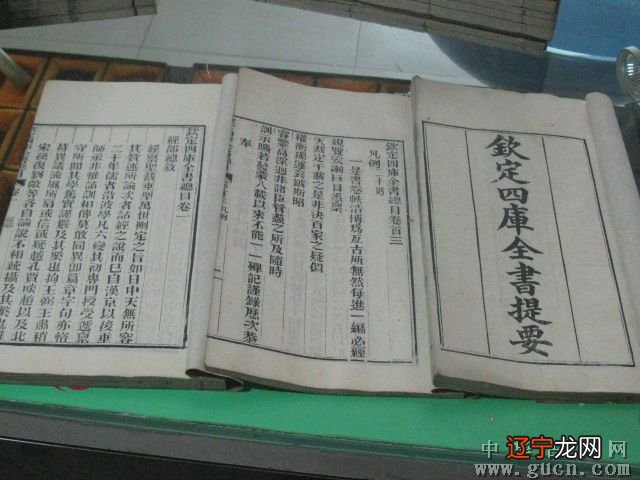 欽定四庫全書提要
欽定四庫全書總目卷首三
凡例二十則
一是書卷帙浩博爲亘古所無然每進一編必經
親覽宏綱巨目悉稟
天裁定千載之是非決百家之疑似
權衡獨運袞鉞斯昭
睿鑒高深迥非諸臣管蠡之所及隨時
訓示曠若發蒙八載以來不能一一殫記謹錄歷次恭
奉
欽定四庫全書總目卷一
經部總敘
經稟聖裁垂型萬世刪定之旨如日中天無所容
其贊述所論次者詁經之說而已自漢京以後垂
二千年儒者沿波學凡六變其初專門授受遞稟
師承非惟詁訓相傳莫敢同異即篇章字句亦恪
守所聞其學篤實謹嚴及其弊也拘王弼王肅稍
持異議流風所扇或信或疑越孔賈啖趙以及北
宋孫復劉敞等各自論說不相統攝及其弊也
中
辽宁龙网
www.gucn.com